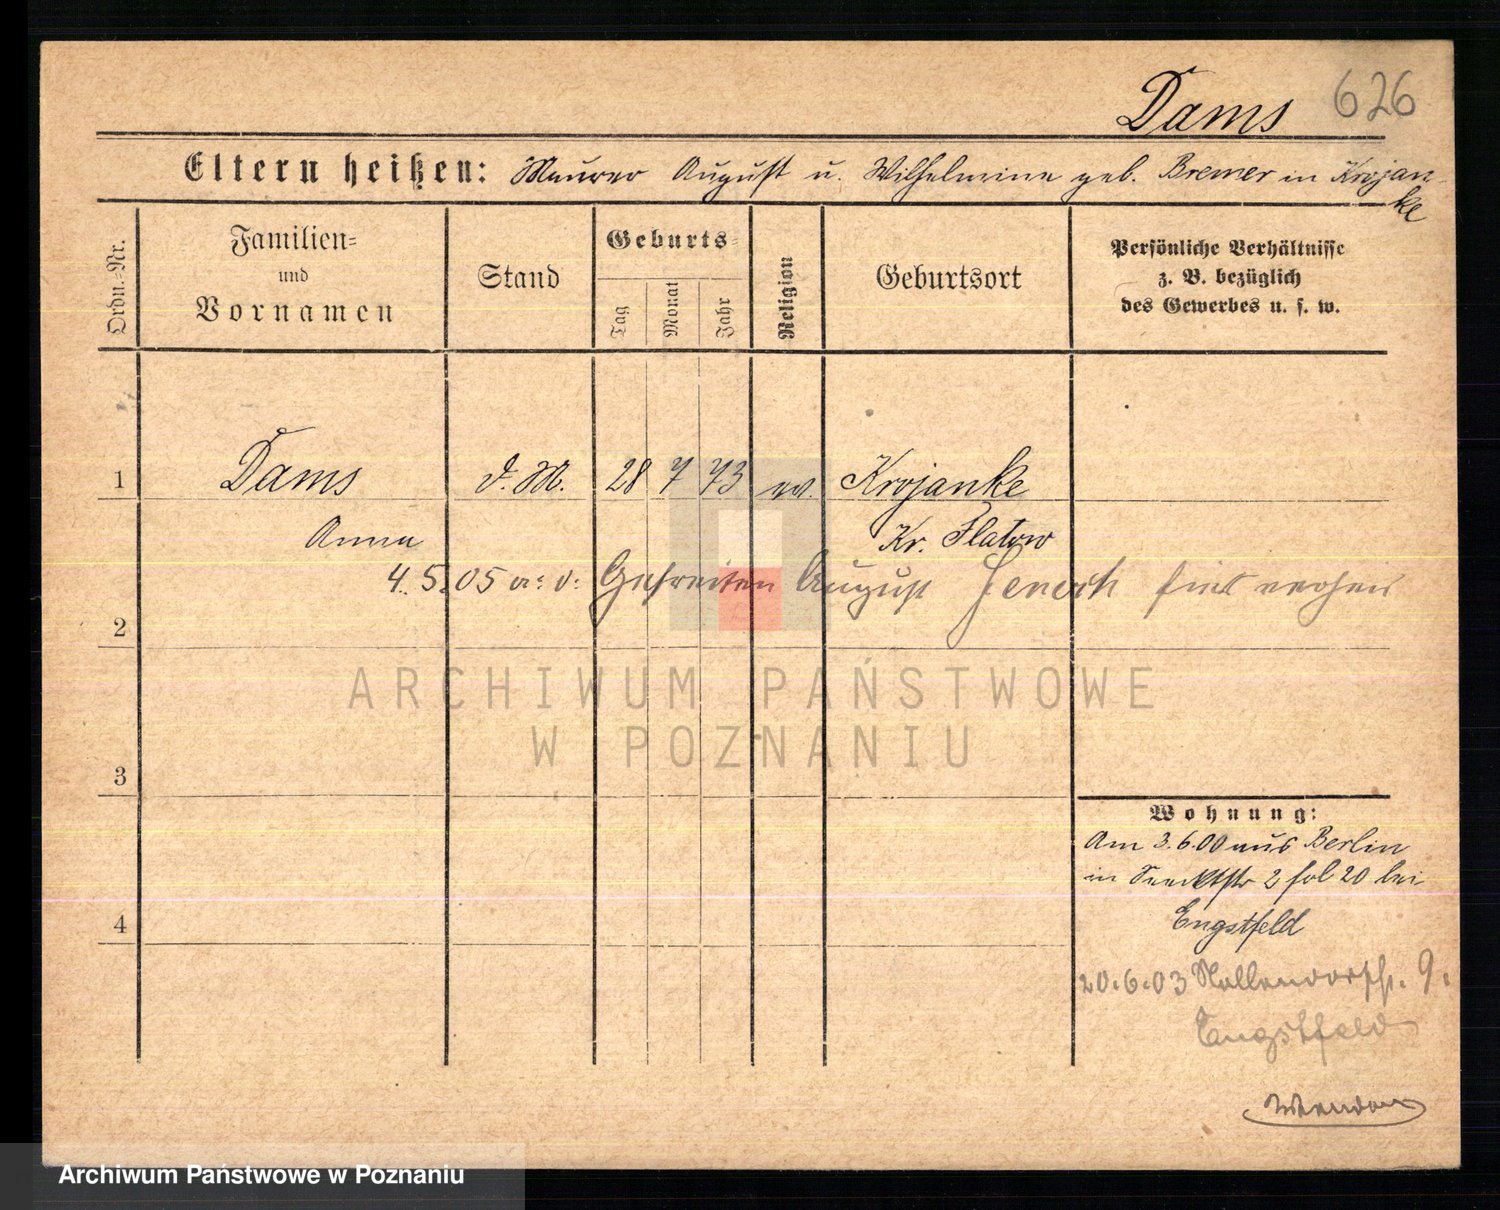 Dams 626
Eltern heißen: Maurer August u. Wilhelmine geb. Bremer in Krojanke
Ordn.-Nr.
Familien-
und
Vornamen
Stand
Geburts-
Tag
Monat
Jahr
Religion
Geburtsort
Persönliche Verhältnisse
z. B. bezüglich
des Gewerbes u. s. w.
1 Dams d. M. 28 7 73 ev. Krojanke
Anna Kr. Flatow
4.5.05 Gefreiten August
2
ARCHIWUM PAŃSTWOWE
W POZNANIU
3
Wohnung:
Am 3.6.00 aus Berlin
in 2 fol 20 bei
4 Engstfeld
20.6.03 9.
Engstfeld
Archiwum Państwowe w Poznaniu